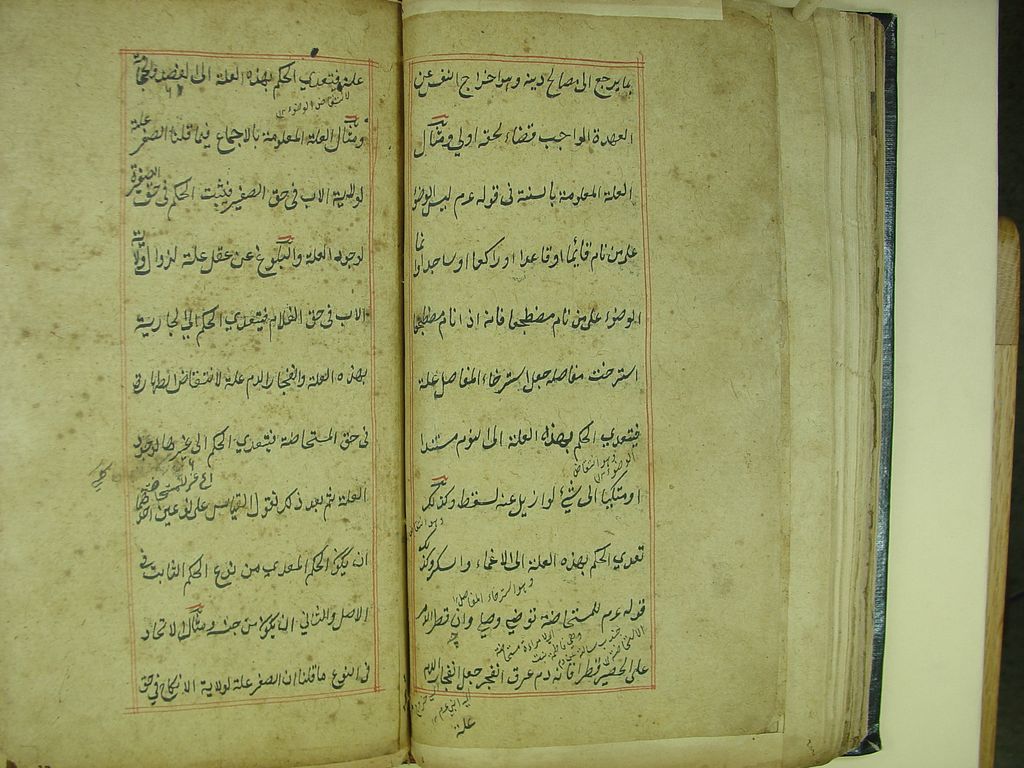 ما يرجع الى مصالح دينه وهو اخراج النفس عن
العهدة الواجب قضاء لحقه اولى ومثال
العلة المعلومة بالسنة فى قوله عم ليس الوضو
على من نام قايما او قاعدا او راكعا او ساجدا انما
الوضوء على من نام مضطجعا فانه اذا نام مضطجعا
استرخت مفاصله جعل استرخاء المفاصل علة
فيتعدى الحكم بهذه العلة الى النوم مستندا
او متكيا الى شئ لو ازيل عنه لسقط وكذلك
تعدى الحكم بهذه العلة الى الاغماء والسكر وكذلك
قوله عم للمستحاضة توضئ وصلى وان قطر الدم
على الحصير قطرا فانه دم عرق انفجر جعل انفجار الدم
علة
علة فيتعدى الحكم بهذه العلة الى الفصد والحجامة
لانتقاض الوضوء
ومثال العلة المعلومة بالاجماع فيما قلنا الصغر علة
لولاية الاب فى حق الصغير فيثبت الحكم فى حق الصغيرة
لوجود العلة والبلوغ عن عقل علة لزوال ولاية
الاب فى حق الغلام فيتعدى الحكم الى الجارية
بهذه العلة وانفجار الدم علة لانتقاض الطهارة
فى حق المستحاضة فيتعدى الحكم الى غيرها لوجود
العلة ثم بعد ذلك نقول القياس على نوعين احدهما
ان يكون الحكم المعدى من نوع الحكم الثابت فى
الاصل والثانى ان يكون من جنسه ومثال الاتحاد
فى النوع ما قلنا ان الصغر علة لولاية الانكاح فى حق